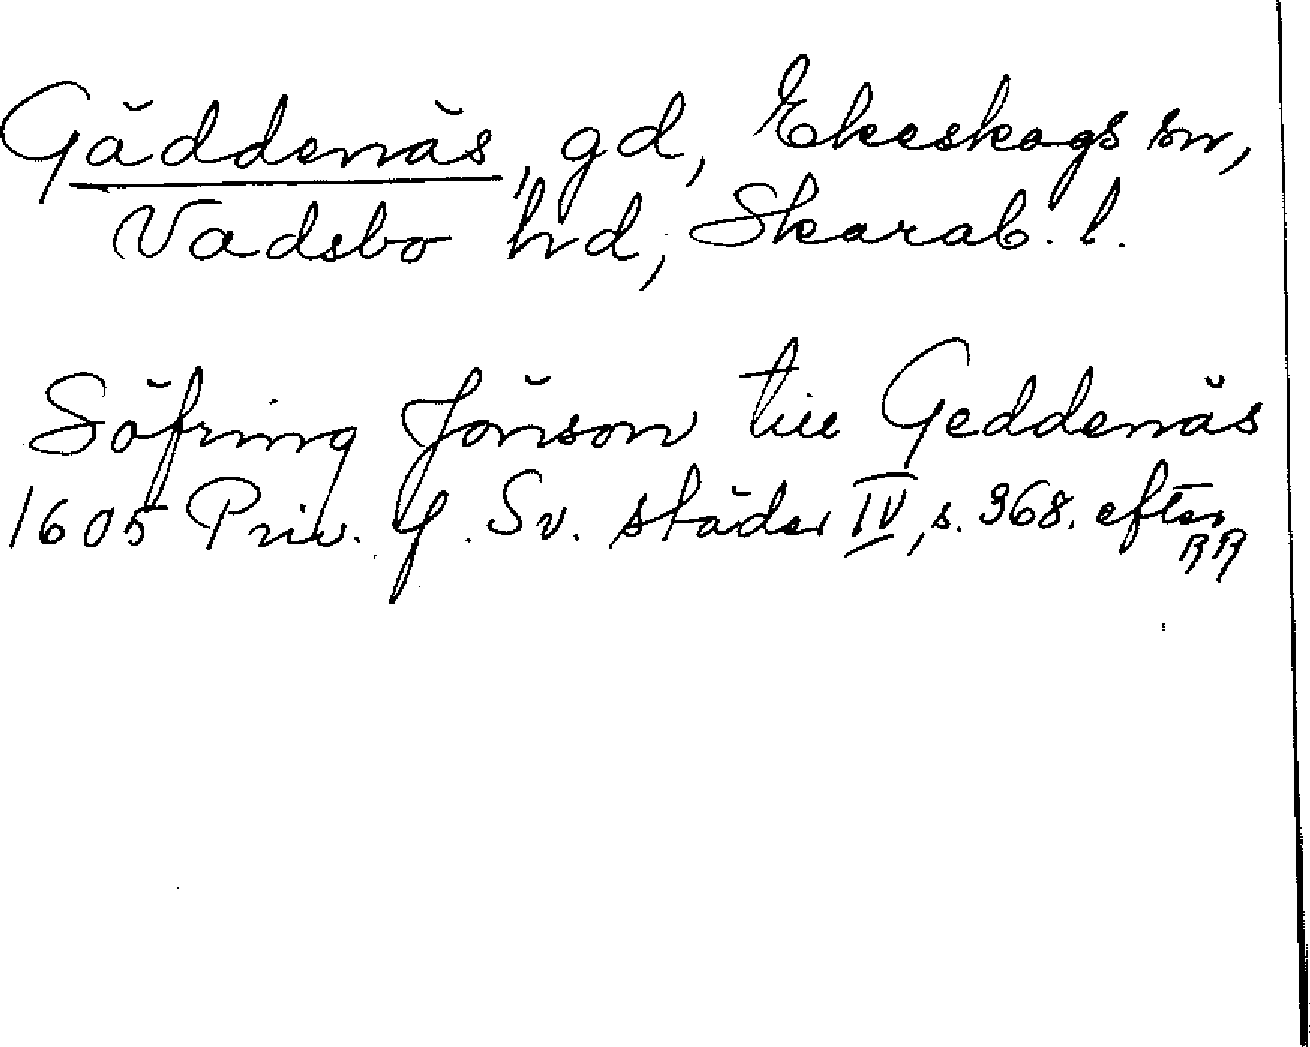 Gäddenäs, gd, Ekeskogs sn,
Vadsbo hd, Skarab. l.
Söfring Jönson till Geddenäs
1605 Priv. f. Sv. städer IV, s. 368. efter
RR